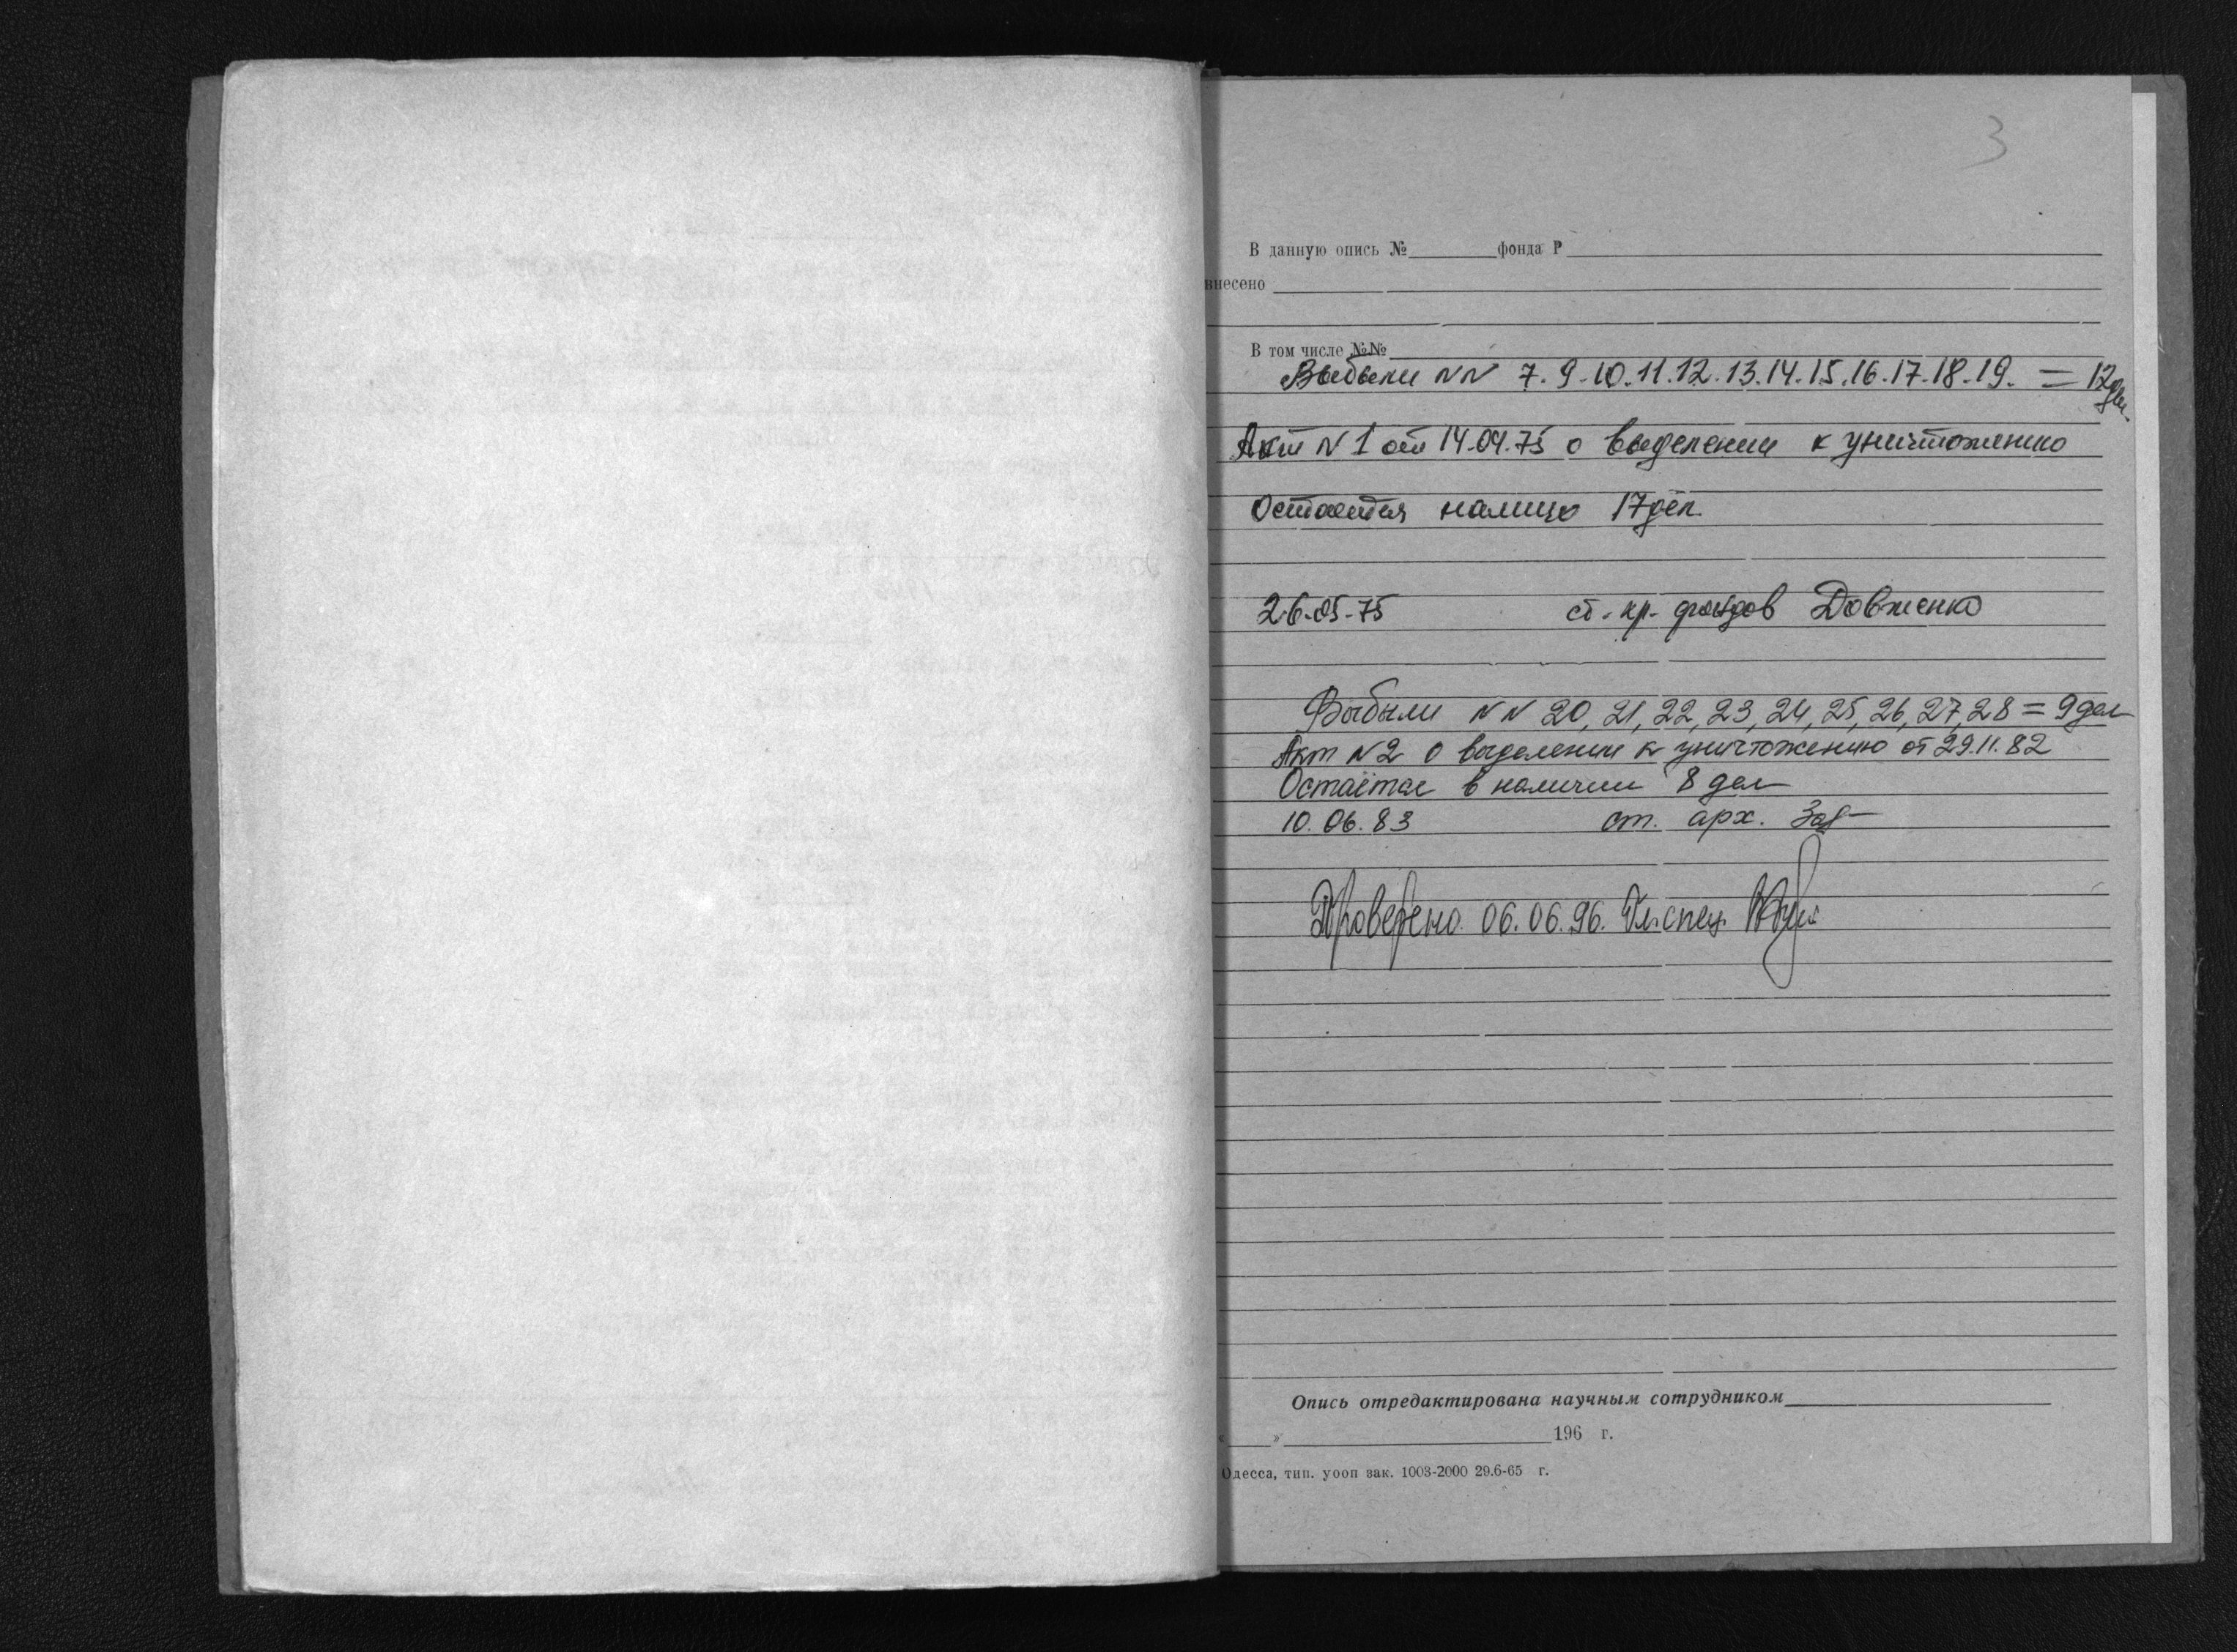 3
В данную опись № фонда Р
внесено
В том числе №№
Выбыли NN 7. 9. 10. 11. 12. 13. 14. 15. 16. 17. 18. 19. = 12 дел.
Акт N 1 от 14.04.75 о выделении к уничтожению
Остается налицо 17 дел.
26.05.75 ст. хр. фондов Довженко
Выбыли NN 20, 21, 22, 23, 24, 25, 26, 27, 28 = 9 дел
Акт N 2 о выделении к уничтожению от 29.11.82
Остаётся в наличии 8 дел
10.06.83 ст. арх.
Проверено. 06.06.96. Гл. спец.
Опись отредактирована научным сотрудником
« » 196 г.
Одесса, тип. уооп зак. 1003-2000 29.6-65 г.